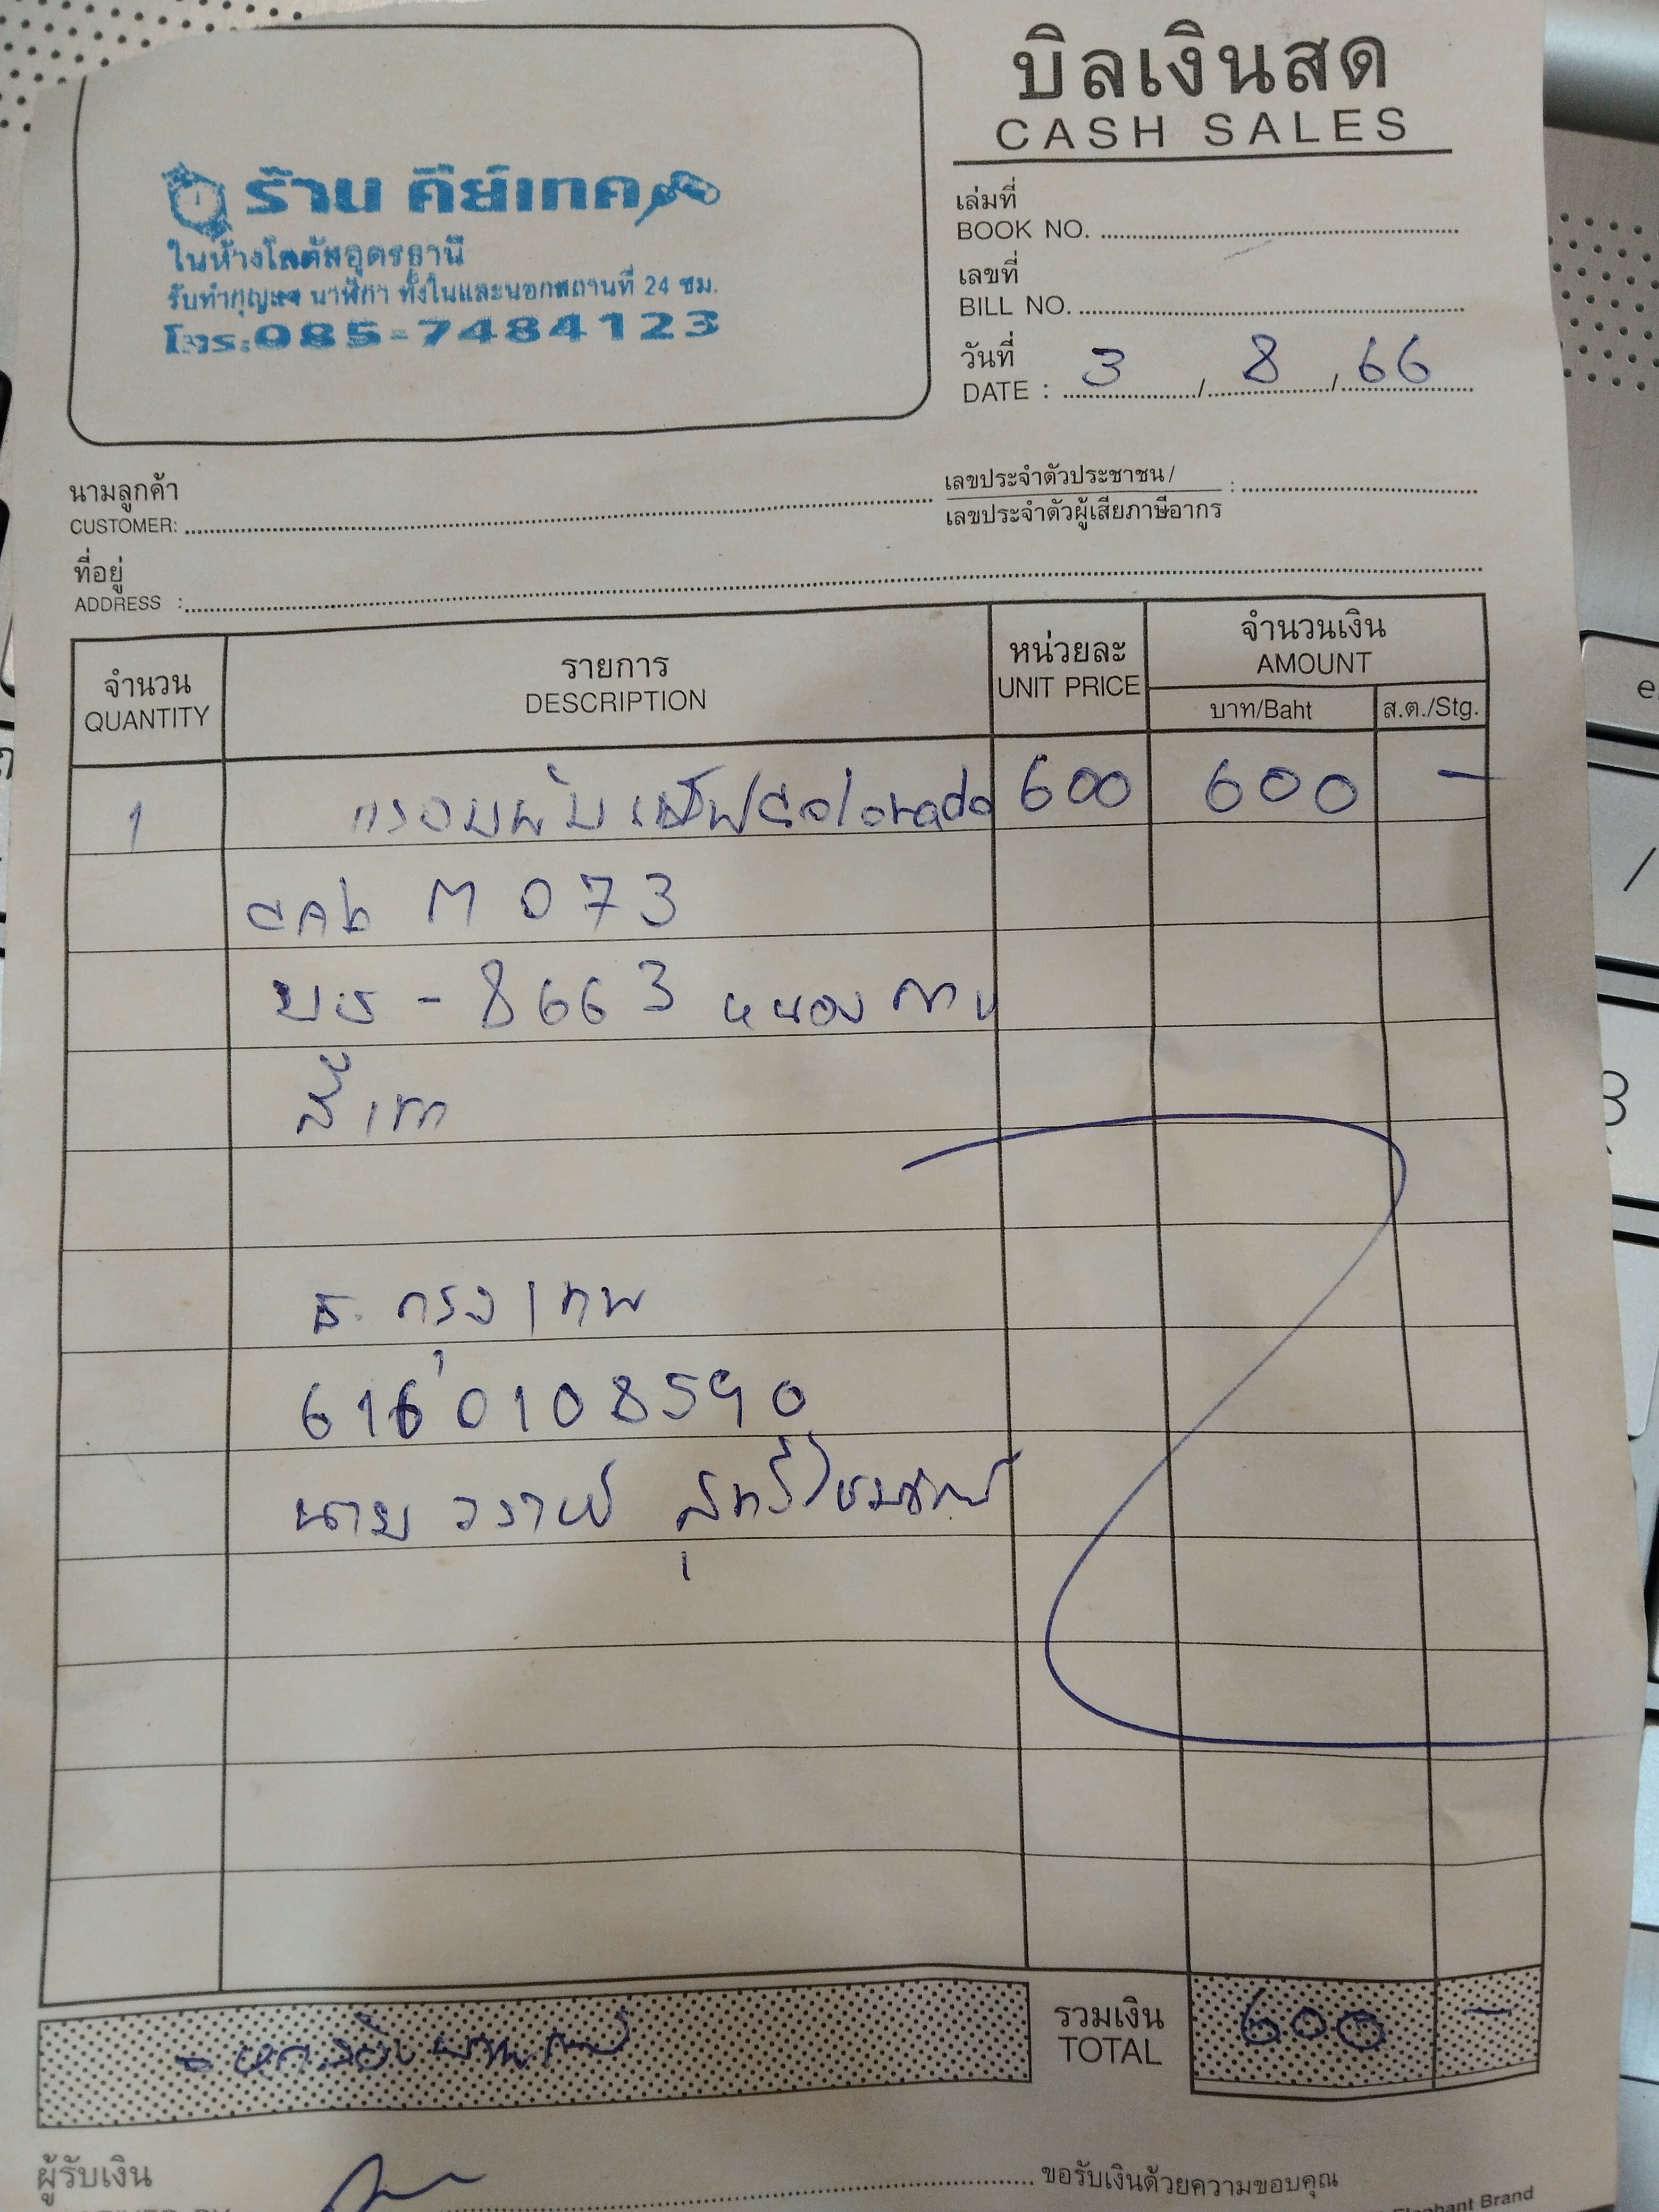 บิลเงินสด
CASH SALES
ร้าน คีย์เทค
ในห้างโลตัสอุดรธานี
รับทำกุญแจ นาฬิกา ทั้งในและนอกสถานที่ 24 ชม.
โทร:085-7484123
เล่มที่
BOOK NO.
เลขที่
BILL NO.
วันที่
DATE : 3 / 8 / 66
นามลูกค้า
CUSTOMER:
เลขประจำตัวประชาชน /
เลขประจำตัวผู้เสียภาษีอากร :
ที่อยู่
ADDRESS :
จำนวน รายการ หน่วยละ จำนวนเงิน
QUANTITY DESCRIPTION UNIT PRICE AMOUNT
บาท/Baht ส.ต./Stg.
1 Colorado 600 600 -
cab M 073
บร - 8663 หนองคาย
สีเทา
ธ. กรุงเทพ
6160108590
นาย
รวมเงิน
TOTAL 600 -
ผู้รับเงิน
ขอรับเงินด้วยความขอบคุณ
Elephant Brand